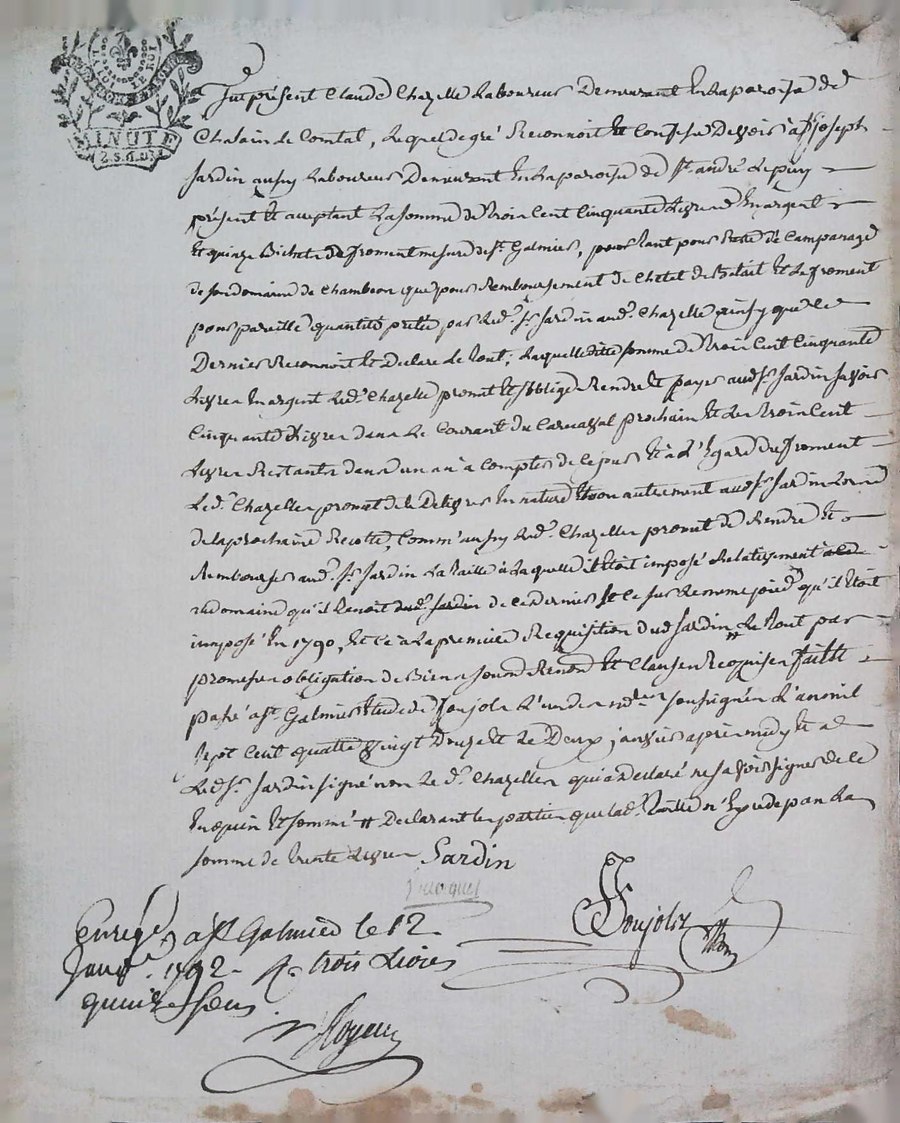 LA LOI ET LE ROI
MINUTE
2. S. 6. D.
fut présent Claude Chazelle Laboureur Demeurant En la paroisse de
Chalain de Comtal, Lequel de gré Reconnoit Et Confesse Devoir à Sr. joseph
Jardin aussy Laboureur Demeurant En la paroisse de St. andré Le puy
présent Et acceptant La somme de trois Cent Cinquante Livres En argent
Et quinze Bichets de froment mesure de St. Galmier, pour tant pour Reste de Camparage
de son domaine de Chambeon que pour Remboursement de Chetel de Bétail Et Le froment
pour pareille quantité prêtée par Led. Sr. Jardin aud. Chazelle ainsy que Le
Dernier Reconnoit Et Declare Le tout; Laquelle dite somme de trois Cent Cinquante
Livres En argent Led. Chazelle promet Et s'oblige Rendre Et payer aud. Sr. Jardin savoir
Cinquante Livres dans Le Courant du Carnaval prochain Et Les trois Cent
Livres Restantes dans un an à Compter de Ce jour Et à L'Egard du froment
Led. Chazelles promet de Le Délivrer En nature Et non autrement aud. Sr. Jardin Lors
de la prochaine Recolte, Comm'aussy Led. Chazelles promet de Rendre Et
Rembourser aud. Sr. Jardin La taille à Laquelle il Etoit imposé Relativement à
domaine qu'il tenoit dud. Jardin de Ce dernier Et Ce sur Le même pied qu'il Etoit
imposé En 1790, Et Ce à La premiere Requisition dud Jardin # Le tout par
promesse obligation de Biens soum Renon Et Clauses Requises faitte
passé à St. Galmier Etude de Soujols L'un des notres soussignés L'an mil
sept Cent quatre vingt Douze Et Le Deux janvier après midy Et a
Led. Sr. Jardin signé non Led. Chazelles qui a déclaré ne savoir signer de Ce
Enquis Et sommé # Declarant Les parties que Lad. taille n'Excède pas La
somme de trente Livres Jardin
Soujols
Enregé. à St Galmier le 12
Janvr. 1792. R. trois Livres
quinze sous